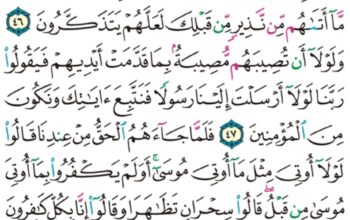 مَّآ أَتَىٰهُم مِّن نَّذِيرٍ مِّن قَبْلِكَ لَعَلَّهُمْ يَتَذَكَّرُونَ ٤٦
وَلَوْلَآ أَن تُصِيبَهُم مُّصِيبَةٌۢ بِمَا قَدَّمَتْ أَيْدِيهِمْ فَيَقُولُوا۟
رَبَّنَا لَوْلَآ أَرْسَلْتَ إِلَيْنَا رَسُولًا فَنَتَّبِعَ ءَايَـٰتِكَ وَنَكُونَ
مِنَ ٱلْمُؤْمِنِينَ ٤٧ فَلَمَّا جَآءَهُمُ ٱلْحَقُّ مِنْ عِندِنَا قَالُوا۟
لَوْلَآ أُوتِىَ مِثْلَ مَآ أُوتِىَ مُوسَىٰٓ ۚ أَوَلَمْ يَكْفُرُوا۟ بِمَآ أُوتِىَ
مُوسَىٰ مِن قَبْلُ ۖ قَالُوا۟ سِحْرَانِ تَظَـٰهَرَا وَقَالُوٓا۟ إِنَّا بِكُلٍّ كَـٰفِرُونَ